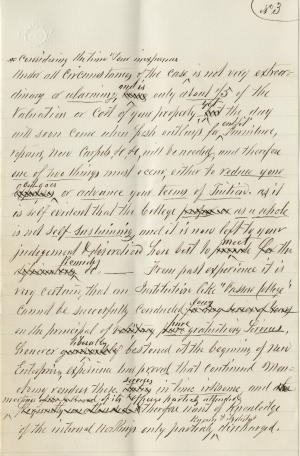 No 3
* Considering the time & our inexperience
Under all Circumstances of the case is not very extraor-
dinary or alarming, and is only about 1/5 of the
Valuation or Cost of your property, yet the day
will soon come when fresh outlays for outfit, Furniture,
repairs, New Carpets &c &c, will be needed, and therefore
one of two things must occur, either to reduce your
or advance your terms of Tuition. as it
is self evident that the College as a whole
is not self sustaining, and it is now left to your
judgement & observation how best to meet for the
remedy &c. — From past experience it is
very certain, that an Institution like "Vassar College"
Cannot be successfully conducted
on the principal of pure gratuitous Services,
however liberally bestowed at the beginning of New
Enterprise, experience has proved that continued Mon-
otony renders these services in time irksome, and
offices partially attended
therefore want of knowledge
of the internal workings only partially discharged.